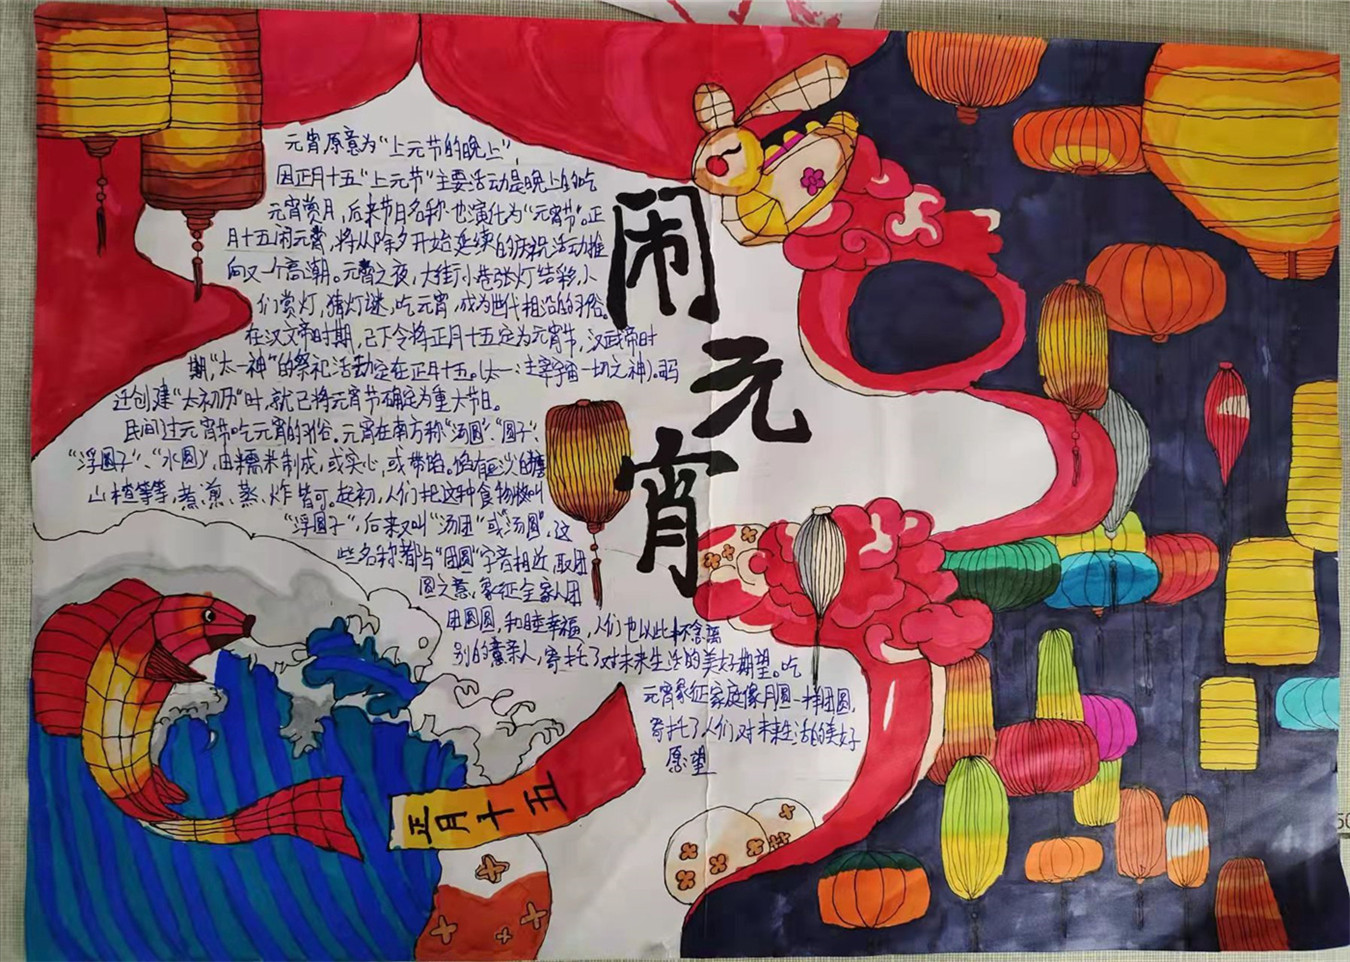 元宵原意为“上元节的晚上”,
因正月十五“上元节”主要活动是晚上的吃
元宵赏月,后来节日名称也演化为“元宵节”。正
月十五闹元宵,将从除夕开始延续的庆祝活动推
向又一个高潮。元宵之夜,大街小巷张灯结彩,人
们赏灯,猜灯谜,吃元宵,成为世代相沿的习俗。
在汉文帝时期,已下令将正月十五定为元宵节,汉武帝时
期,“太一神”的祭祀活动定在正月十五。(太一:主宰宇宙一切之神)。司
迁创建“太初历”时,就已将元宵节确定为重大节日。
民间过元宵节吃元宵的习俗。元宵在南方称“汤圆”、“圆子”、
“浮圆子”、“水圆”,由糯米制成,或实心,或带馅。馅有豆沙、白糖
山楂等等,煮、煎、蒸、炸皆可。起初,人们把这种食物叫
“浮圆子”,后来又叫“汤团”或“汤圆”,这
些名称都与“团圆”字音相近,取团
圆之意,象征全家人团
团圆圆,和睦幸福,人们也以此怀念离
别的亲人,寄托了对未来生活的美好期望。吃
元宵象征家庭像月圆一样团圆,
寄托了人们对未来生活的美好
愿望
闹元宵
正月十五